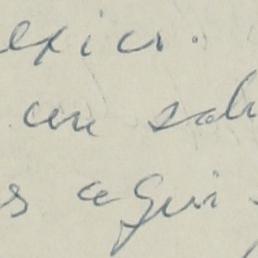 exico.
un sal
s aqui